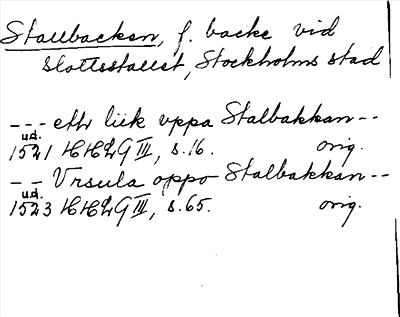 Stallbacken, f. backe vid
slottsstallet, Stockholms stad
--- ett liik vppa Stalbakkan --
u.d.
1521 HHLG III, s.16. orig.
-- Vrsula oppo Stalbakkan --
u.d.
1523 HHLG III, s.65. orig.